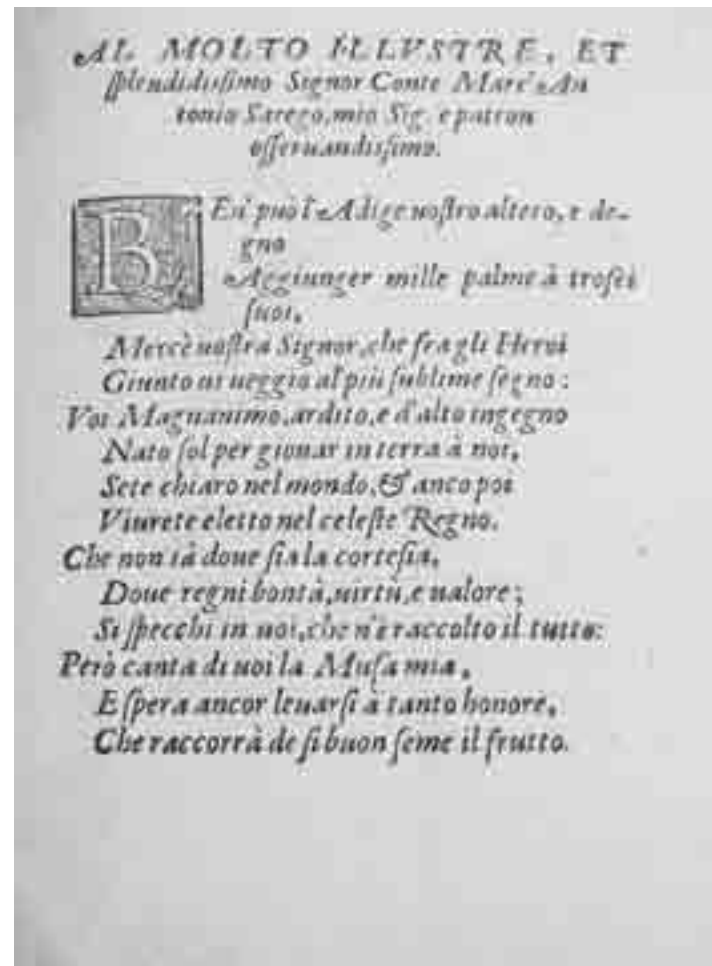 AL MOLTO ILLVSTRE, ET
ſplendidiſſimo Signor Conte Marc'An
tonio Sarego, mio Sig. e patron
oſſeruandiſſimo.
BEn' può l'Adige noſtro altero, e de-
gno
Aggiunger mille palme à trofei
ſuoi,
Mercè uoſtra Signor, che fra gli Heroi
Giunto ui ueggio al più ſublime ſegno:
Voi Magnanimo, ardito, e d'alto ingegno
Nato ſol per giouar in terra à noi,
Sete chiaro nel mondo, & anco poi
Viurete eletto nel celeſte Regno.
Che non sà doue ſia la corteſia,
Doue regni bontà, uirtù, e ualore;
Si ſpecchi in uoi, che n'è raccolto il tutto:
Però canta di uoi la Muſa mia,
E ſpera ancor leuarſi à tanto honore,
Che raccorrà de ſi buon ſeme il frutto.